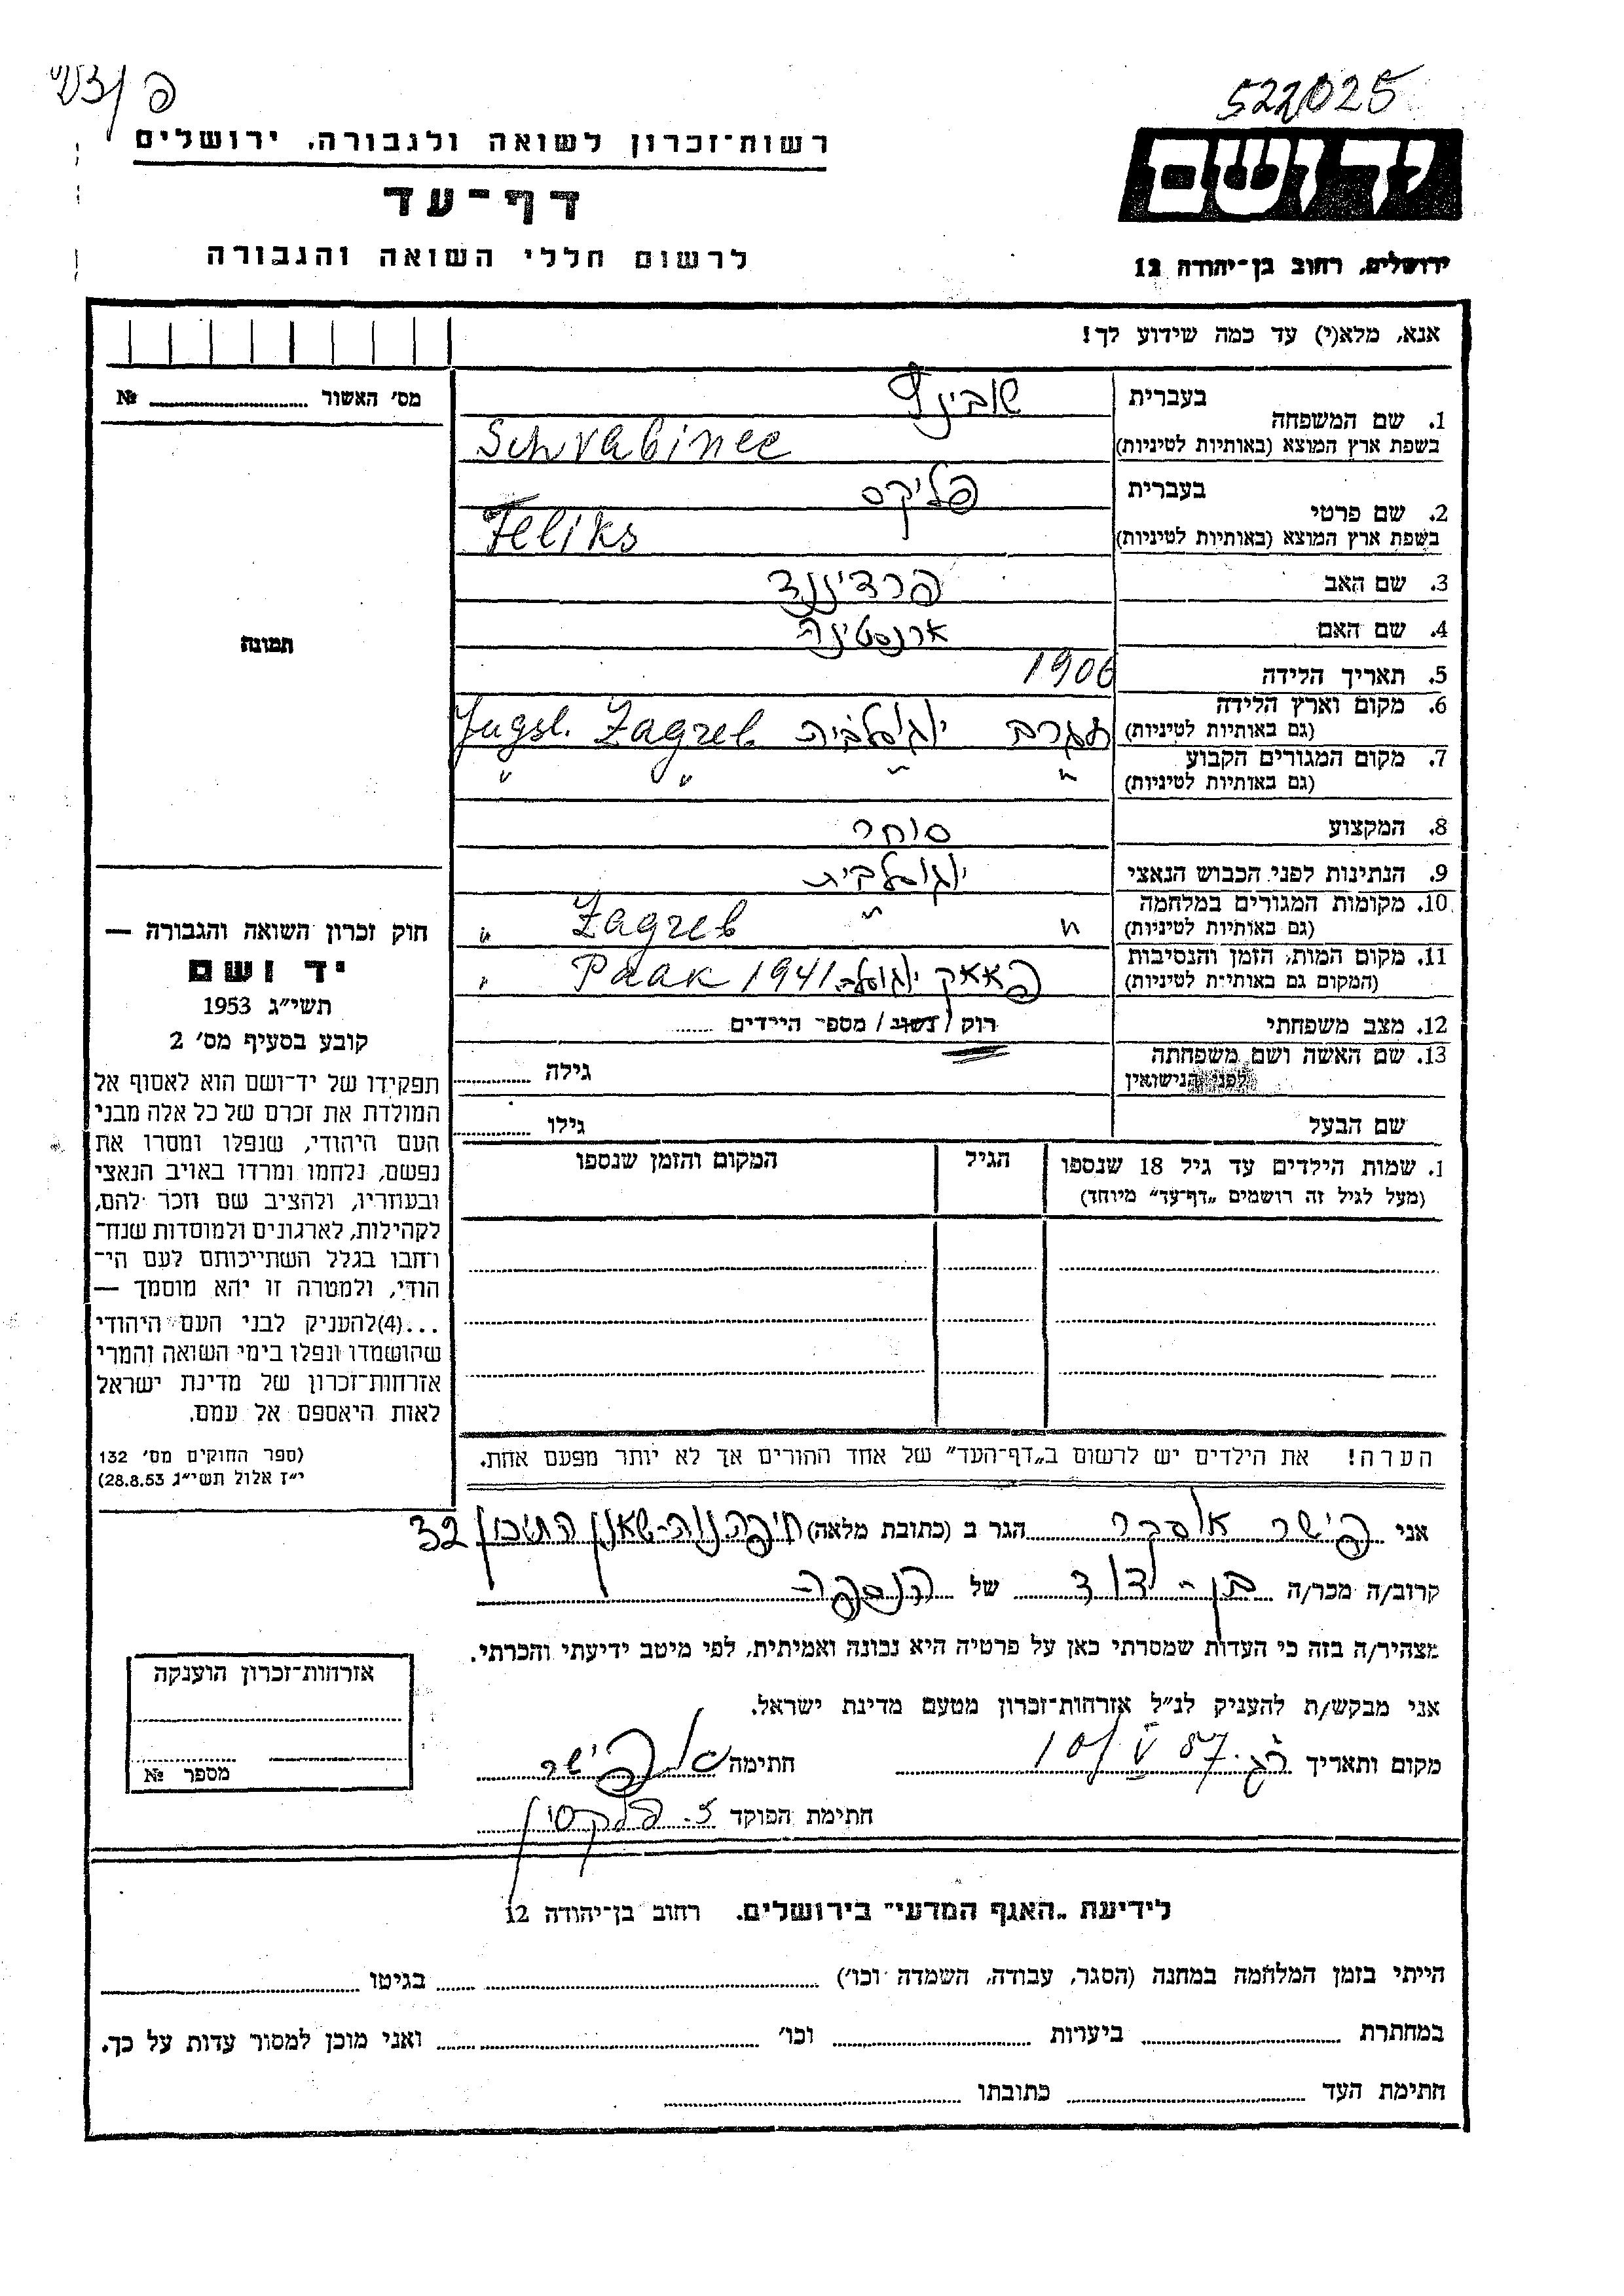 522025
רשות־זכרון לשואה ולגבורה, ירושלים
דף־עד
לרשום חללי השואה והגבורה
יד ושם
ירושלים, רחוב בן־יהודה 12
אנא, מלא(י) עד כמה שידוע לך!
מס׳ האשור №
תמונה
1. שם המשפחה
בעברית
בשפת ארץ המוצא (באותיות לטיניות) Schvabinec
2. שם פרטי
בעברית פליקס
בשפת ארץ המוצא (באותיות לטיניות) Feliks
3. שם האב פרדיננד
4. שם האם ארנסטינה
5. תאריך הלידה 1906
6. מקום וארץ הלידה
(גם באותיות לטיניות) זגרב יוגוסלביה Zagreb Jugsl.
7. מקום המגורים הקבוע
(גם באותיות לטיניות) " " " "
8. המקצוע סוחר
9. הנתינות לפני הכבוש הנאצי יוגוסלבית
10. מקומות המגורים במלחמה
(גם באותיות לטיניות) " " Zagreb "
11. מקום המות, הזמן והנסיבות
(המקום גם באותיות לטיניות) פאאק יוגוסלב. Paak 1941 "
12. מצב משפחתי רוק / נשוי / מספר הילדים
13. שם האשה ושם משפחתה
לפני הנישואין גילה
שם הבעל גילו
1. שמות הילדים עד גיל 18 שנספו הגיל המקום והזמן שנספו
(מעל לגיל זה רושמים „דף־עד״ מיוחד)
חוק זכרון השואה והגבורה —
יד ושם
תשי״ג 1953
קובע בסעיף מס׳ 2
תפקידו של יד־ושם הוא לאסוף אל
המולדת את זכרם של כל אלה מבני
העם היהודי, שנפלו ומסרו את
נפשם, נלחמו ומרדו באויב הנאצי
ובעוזריו, ולהציב שם וזכר להם,
לקהילות, לארגונים ולמוסדות שנח־
רבו בגלל השתייכותם לעם הי־
הודי, ולמטרה זו יהא מוסמך —
...(4)להעניק לבני העם היהודי
שהושמדו ונפלו בימי השואה והמרי
אזרחות־זכרון של מדינת ישראל
לאות היאספם אל עמם.
(ספר החוקים מס׳ 132
י״ז אלול תשי״ג 28.8.53)
הערה! את הילדים יש לרשום ב„דף־העד״ של אחד ההורים אך לא יותר מפעם אחת.
אני פישר אוסקר הגר ב (כתובת מלאה) חיפה נוה-שאנן התיכון 32
קרוב/ה מכר/ה בן-דוד של הנספה
מצהיר/ה בזה כי העדות שמסרתי כאן על פרטיה היא נכונה ואמיתית, לפי מיטב ידיעתי והכרתי.
אני מבקש/ת להעניק לנ״ל אזרחות־זכרון מטעם מדינת ישראל.
מקום ותאריך 10/V 87 חתימה א. פישר
חתימת הפוקד
אזרחות־זכרון הוענקה
מספר №
לידיעת „האגף המדעי״ בירושלים. רחוב בן־יהודה 12
הייתי בזמן המלחמה במחנה (הסגר, עבודה, השמדה וכו׳) בגיטו
במחתרת ביערות וכו׳ ואני מוכן למסור עדות על כך.
חתימת העד כתובתו